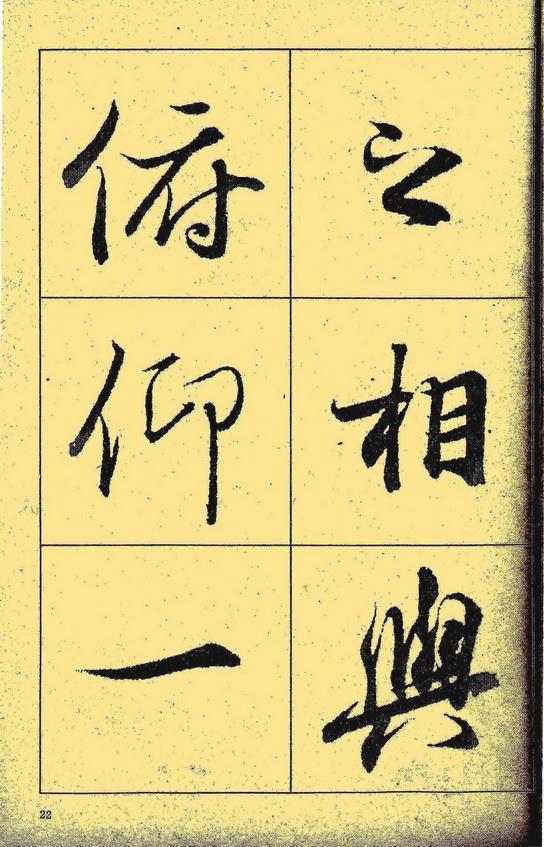 之相與
俯仰一
22